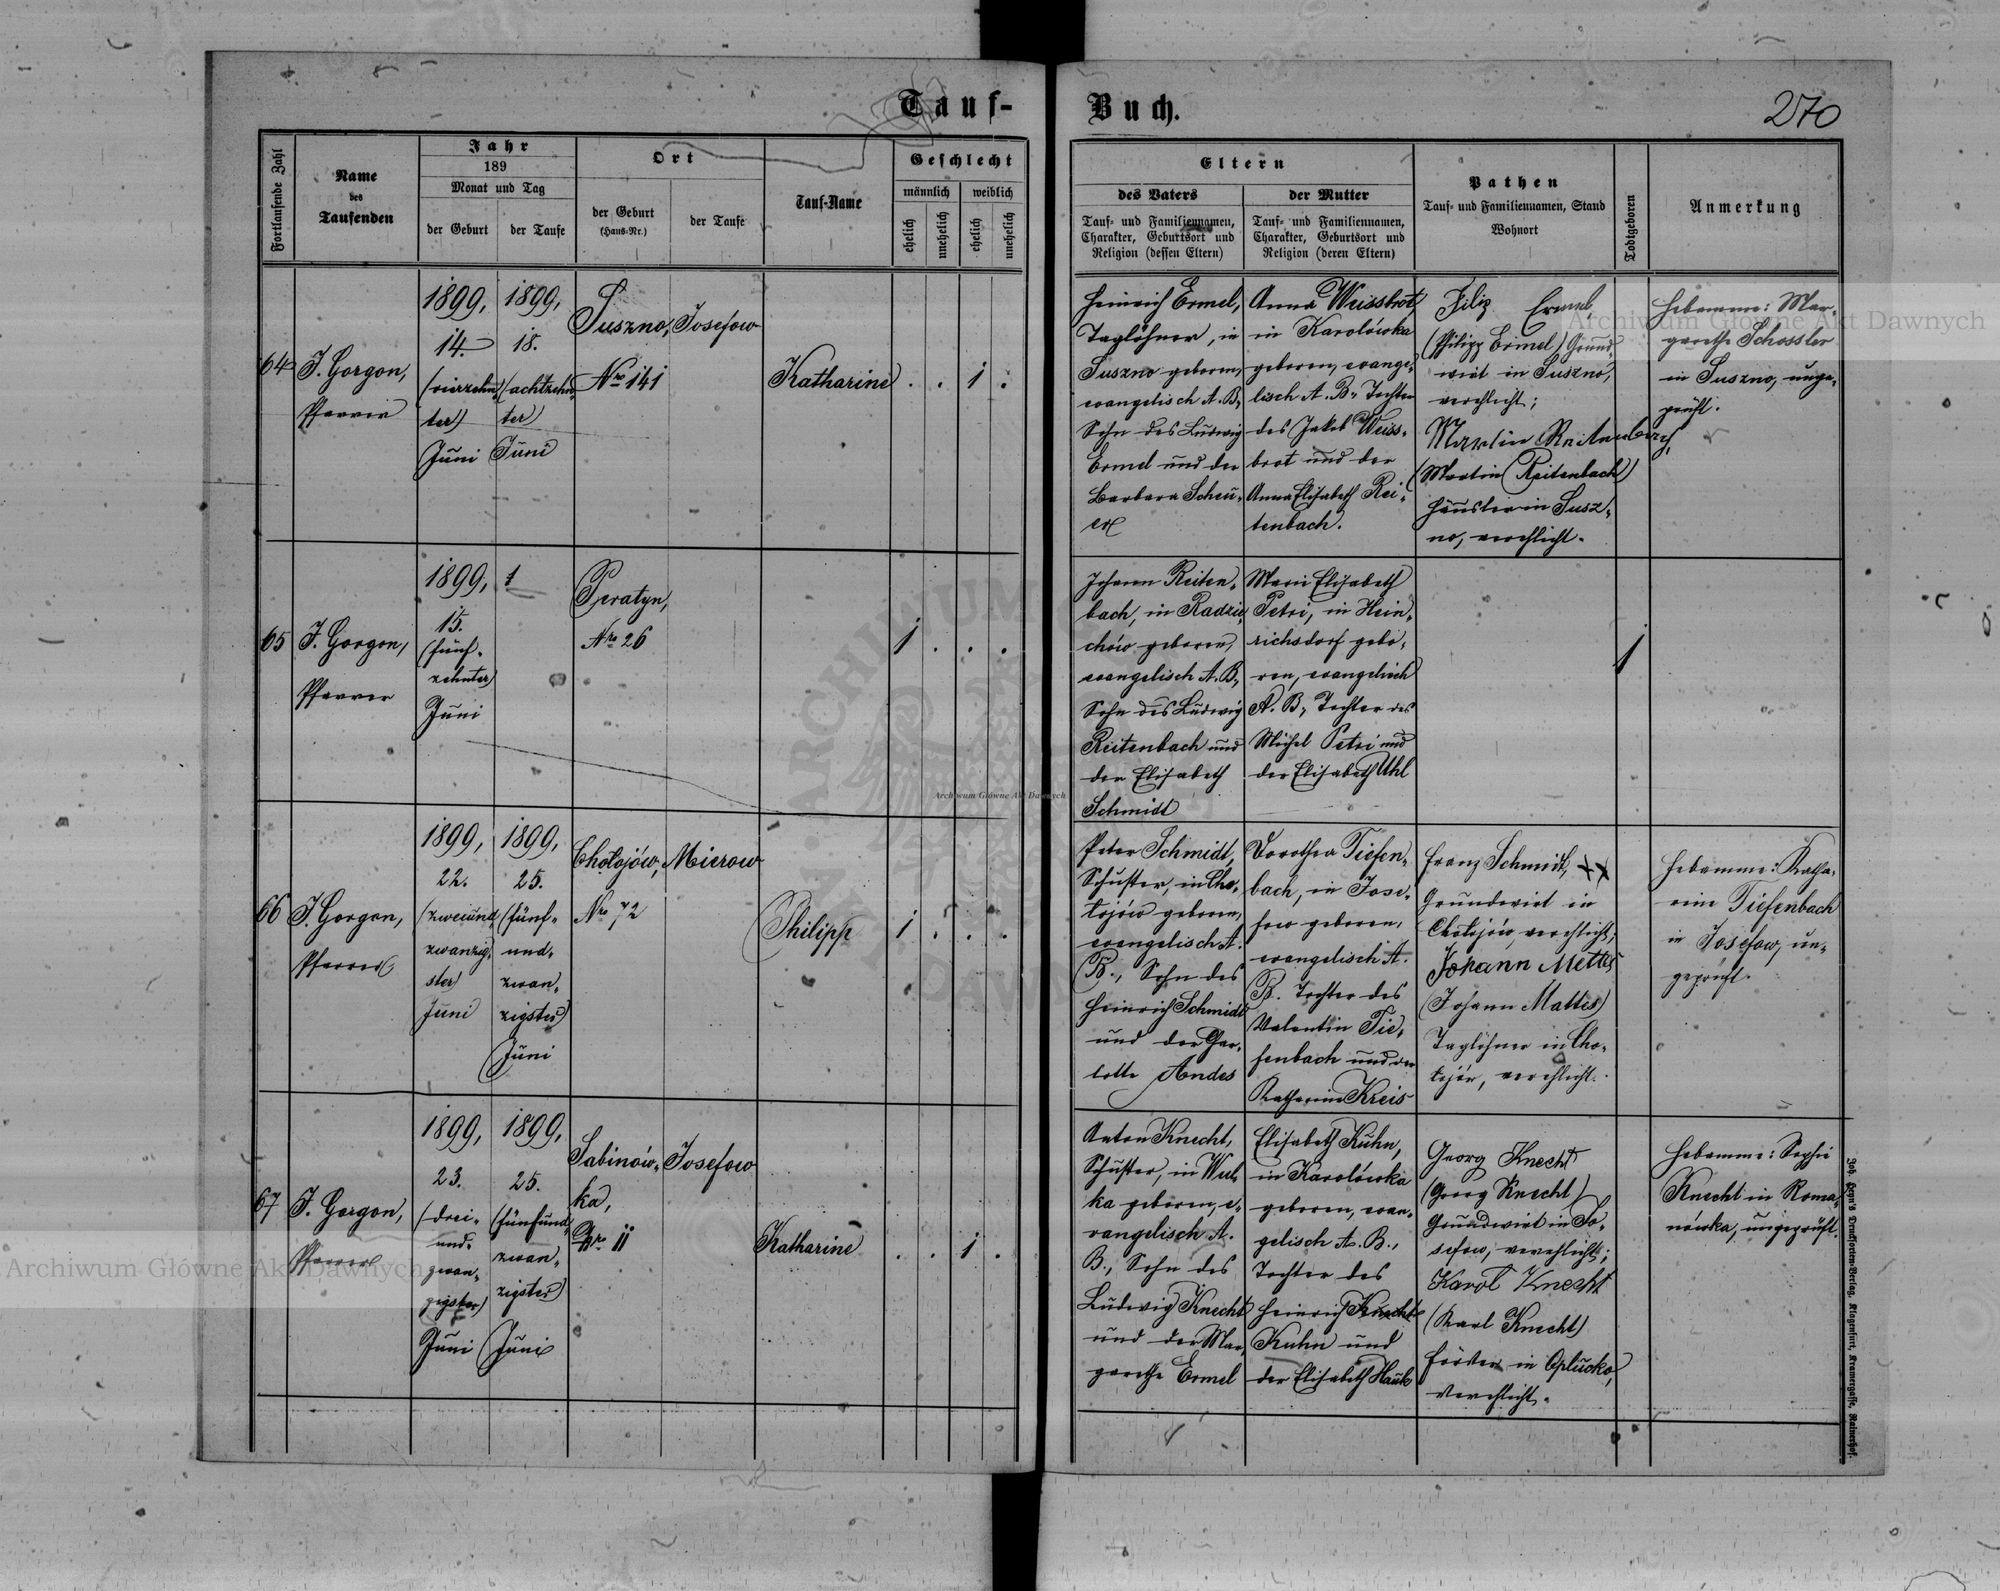 Tauf-
Buch.
270
Fortlaufende Zahl
Name
des
Taufenden
Jahr
189
Monat und Tag
der Geburt
der Taufe
Ort
der Geburt
(Haus-Nr.)
der Taufe
Tauf-Name
Geschlecht
männlich
weiblich
ehelich
unehelich
ehelich
unehelich
Eltern
des Vaters
Tauf- und Familiennamen,
Charakter, Geburtsort und
Religion (dessen Eltern)
der Mutter
Tauf- und Familiennamen,
Charakter, Geburtsort und
Religion (deren Eltern)
Pathen
Tauf- und Familiennamen, Stand
Wohnort
Todtgeboren
Anmerkung
64
J. Gorgon,
Pfarrer
1899,
14.
(vierzehn-
ter)
Juni
1899,
18.
(achtzehn-
ter)
Juni
Suszno,
Nro 141
Josefow
Katharine
. . 1 .
Heinrich Ermel,
Taglöhner, in
Suszno geboren,
evangelisch A. B.,
Sohn des Ludwig
Ermel und der
Barbara Scheu-
er
Anna Weissbrot
in Karolówka
geboren, evange-
lisch A. B., Tochter
des Jakob Weiss-
brot und der
Anna Elisabeth Rei-
tenbach.
Filip Ermel,
(Philipp Ermel) Grund-
wirt in Suszno,
verehlicht;
Martin Reitenbach,
(Martin Reitenbach)
Häusler in Susz-
no, verehlicht.
Hebamme: Mar-
garethe Schossler
in Suszno, unge-
prüft.
65
J. Gorgon,
Pfarrer
1899,
15.
(fünf-
zehnter)
Juni
†
Peratyn,
Nro 26
1 . . .
Johann Reiten-
bach, in Radzie-
chów geboren,
evangelisch A. B.,
Sohn des Ludwig
Reitenbach und
der Elisabeth
Schmidt
Marie Elisabeth
Petri, in Hein-
richsdorf gebo-
ren, evangelisch
A. B., Tochter des
Michel Petri und
der Elisabeth Uhl
1
66
J. Gorgon,
Pfarrer
1899,
22.
(zweiund-
zwanzig-
ster)
Juni
1899,
25.
(fünf-
und-
zwan-
zigster)
Juni
Chołojów,
Nro 72
Mierow
Philipp
1 . . .
Peter Schmidt,
Schuster, in Cho-
łojów geboren,
evangelisch A.
B., Sohn des
Heinrich Schmidt
und der Char-
lotte Andes
Dorothea Tiefen-
bach, in Jose-
fow geboren,
evangelisch A.
B. Tochter des
Valentin Tie-
fenbach und der
Katharine Kreis
Franz Schmidt, ××
Grundwirt in
Chołojów, verehlicht;
Johann Mettis
(Johann Mattis)
Taglöhner in Cho-
łojów, verehlicht.
Hebamme: Katha-
rine Tiefenbach
in Josefow, un-
geprüft.
67
J. Gorgon,
Pfarrer
1899,
23.
(drei-
und-
zwan-
zigster)
Juni
1899,
25.
(fünfund-
zwan-
zigster)
Juni
Sabinów-
ka,
Nro 11
Josefow
Katharine
. . 1 .
Anton Knecht,
Schuster, in Wul-
ka geboren, e-
vangelisch A.
B., Sohn des
Ludwig Knecht
und der Mar-
garethe Ermel
Elisabeth Kuhn,
in Karolówka
geboren, evan-
gelisch A. B.,
Tochter des
Heinrich Knecht
Kuhn und
der Elisabeth Hauk
Georg Knecht
(Georg Knecht)
Grundwirt in Jo-
sefow, verehlicht;
Karol Knecht
(Karl Knecht)
Förster in Oplucko,
verehlicht.
Hebamme: Sophie
Knecht in Roma-
nówka, ungeprüft.
Joh. Heyn's Drucksorten-Verlag, Klagenfurt, Kramergasse, Rainerhof.
Archiwum Główne Akt Dawnych
Archiwum Główne Akt Dawnych
Archiwum Główne Akt Dawnych